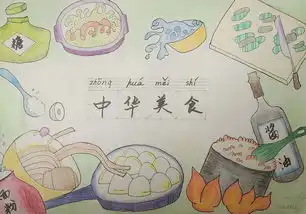 糖
zhōng huá měi shí
中华美食
酱油
面粉